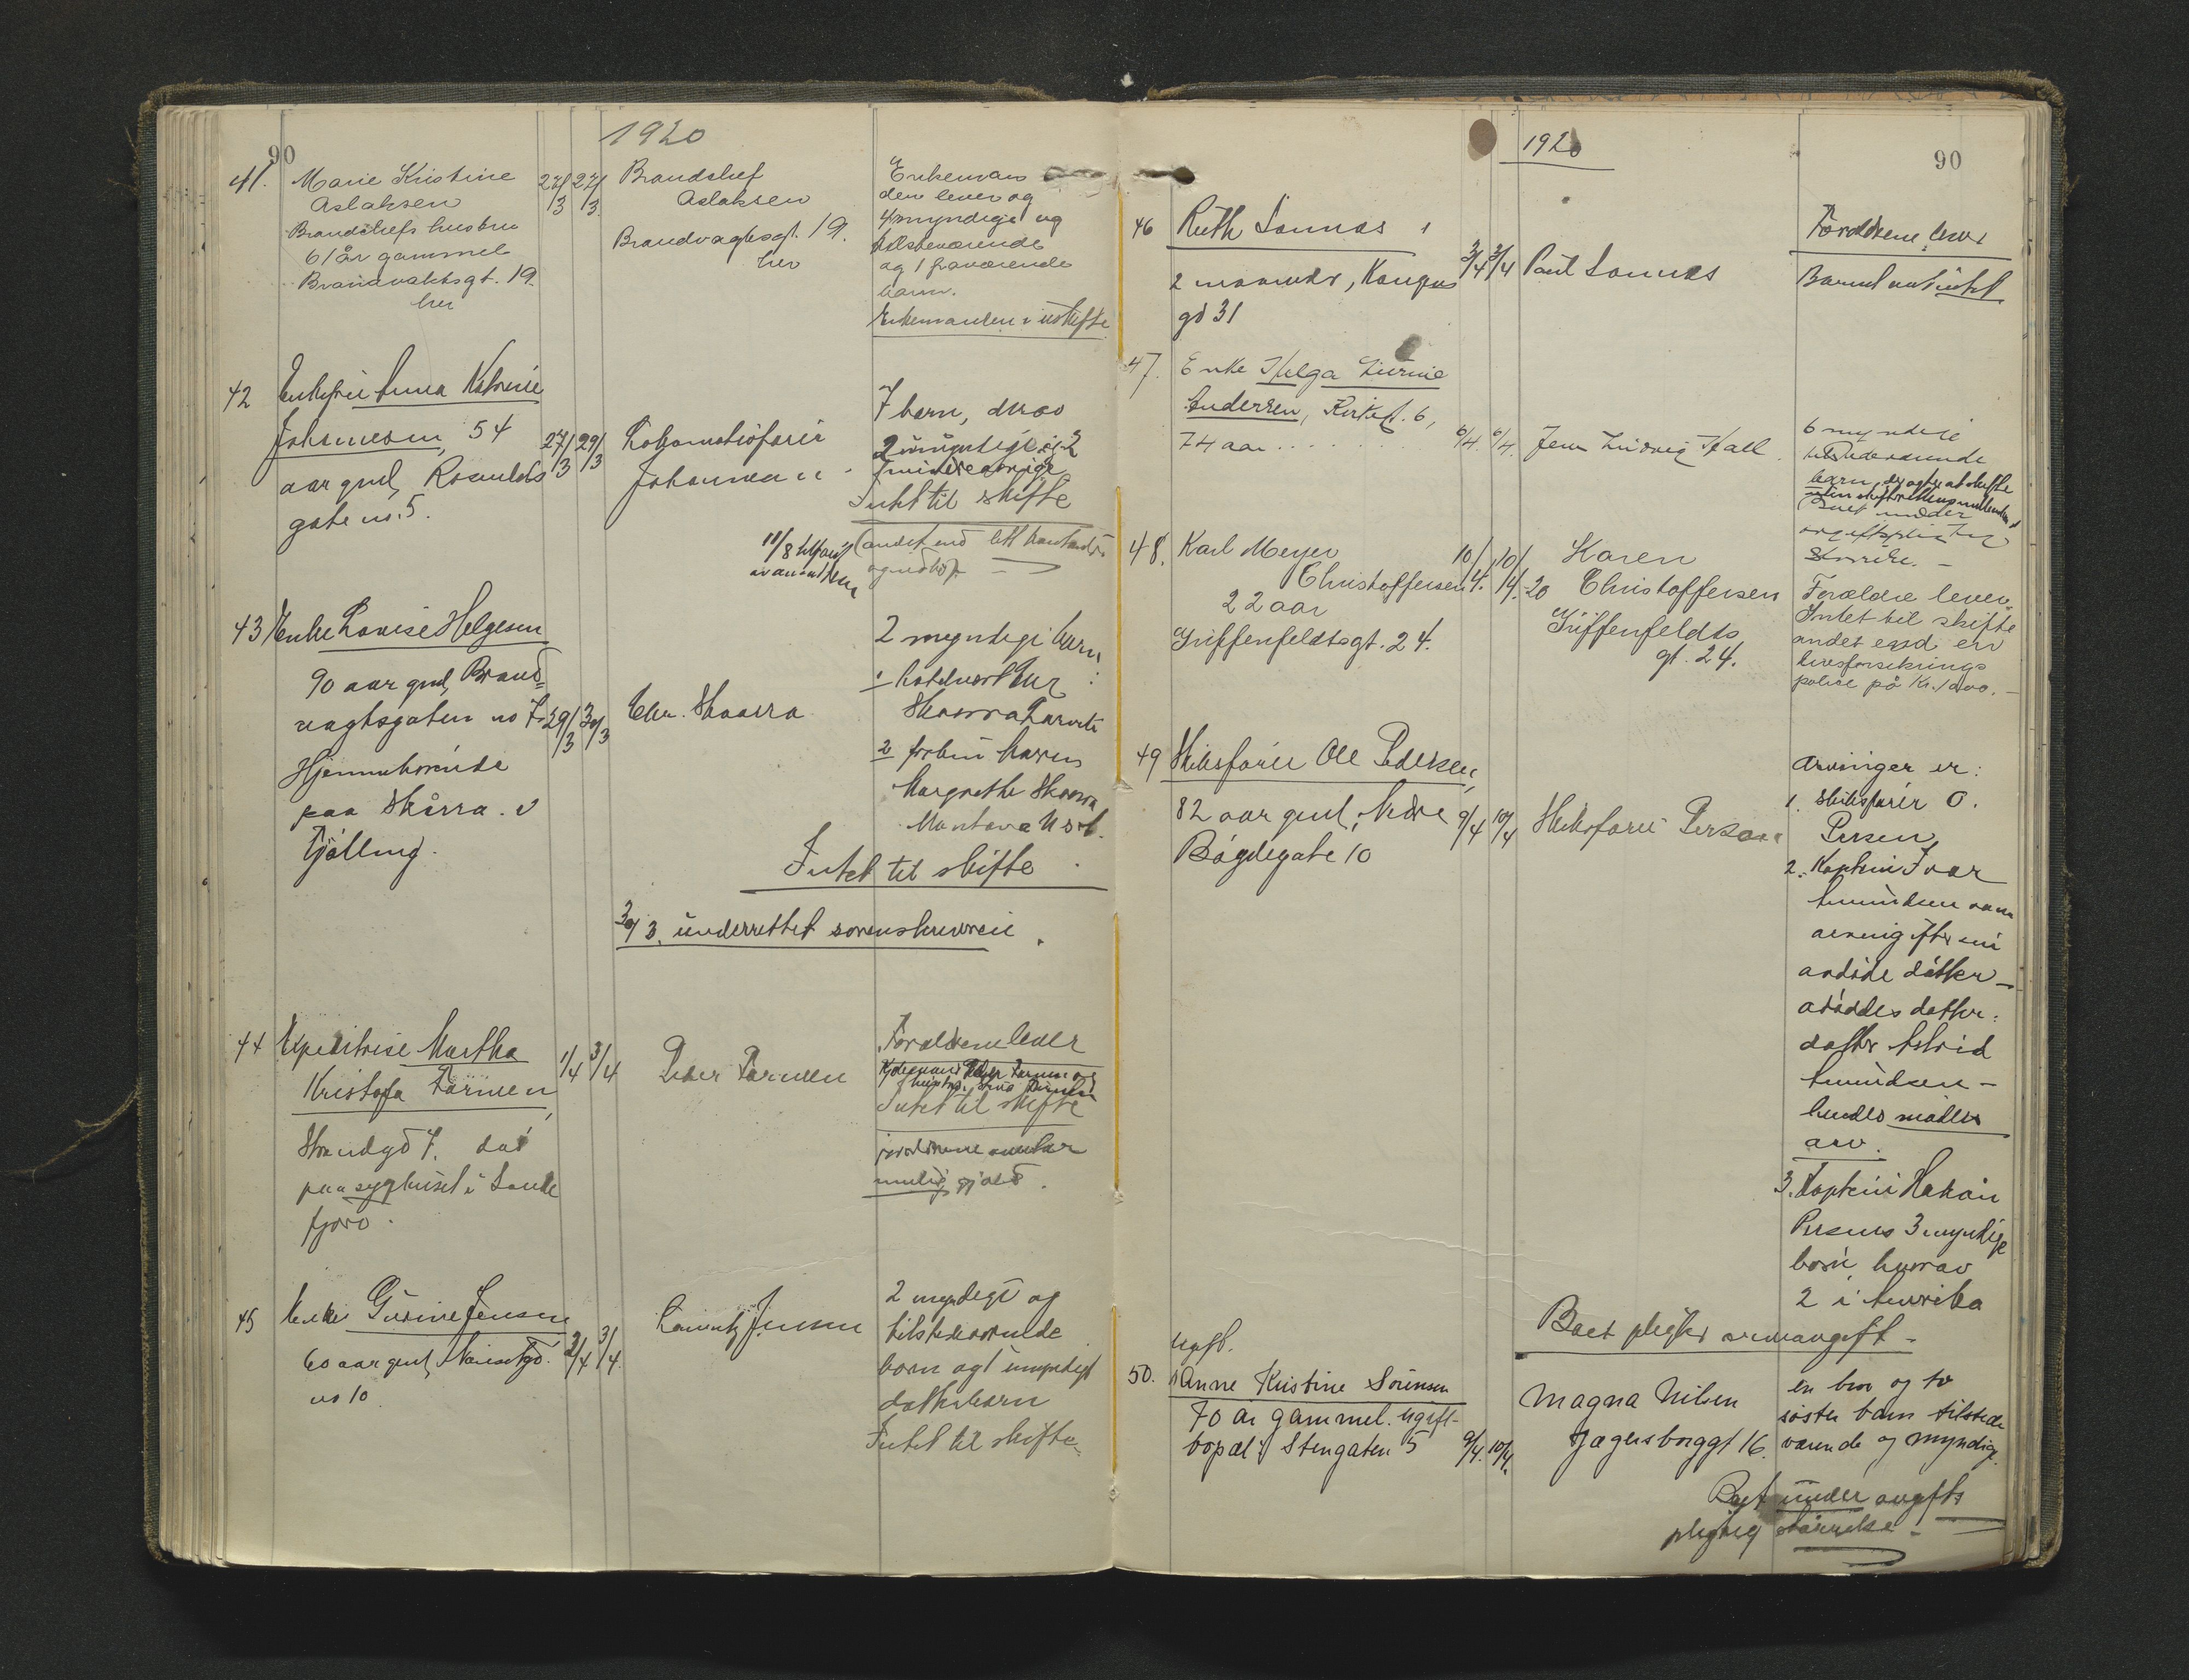 90
1920
41.
Marie Kristine
Aslaksen
Brandchefs hustru
61 år gammel
Brandvaktsgt. 19.
her
27/3 27/3
Brandchef
Aslaksen
Brandvagtsgt. 19.
her
Enkeman
den lever og
4 myndige og
tilstedeværende
og 1 fraværende
barn.
Enkemanden i uskifte
42
Enkefru Anna Katrine
Johannesen, 54
aar gml,
gate no. 5.
27/3 29/3
Lokomotivfører
Johannesen
7 barn, derav
2 umyndige
mindreaarige
Intet til skifte
andet end litt
11/8
43 Enke Lovise Helgesen
90 aar gml, Brand=
vagtsgaten no 7
Hjemmehørende
paa Skårra i
Tjølling.
29/3 30/3
Chr. Skaarra
2 myndige barn:
1
Skaarra Larvik
2
Margrethe Skaarra
Montana
Intet til skifte
30/3. underrettet sorenskriveren.
44 Expeditrise Martha
Kristofa
Strandgd 7. død
paa sygehuset i Sande
fjord.
1/4 3/4
Peder
Forældrene lever
Intet til skifte
forældrene
45 Enke Gurine Jensen
60 aar gml,
no 10
2/4 3/4.
Lauritz Jensen
2 myndige og
tilstedeværende
barn og 1 umyndigt
datterbarn
Intet til skifte
1920
90
46 Ruth Sannas
2 maaneder, Konges
gd 31
3/4 3/4
Paul Sannas
Forældrene lever
Barnet
47. Enke Helga
Andersen, Kirkegt. 6,
74 aar
6/4. 6/4.
Jens Ludvig Hall
6 myndige
tilstedeværende
barn,
Boet under
avgiftspligtig
størrelse. —
48. Karl Meyer
Christoffersen
22 aar
Griffenfeldtsgt. 24.
10/4. 10/4.-20
Karen
Christoffersen
Griffenfeldts
gt. 24.
Forældre lever
Intet til skifte
andet end en
livsforsikrings
police på Kr. 1000. —
49 Skibsfører Ole Pedersen,
82 aar gml, Nedre
Bøgdegate 10
9/4 10/4
Skibsfører
Arvinger er:
1. Skibsfører O.
2. Kaptein Ivar
Amundsen som
arving efter sin
avdøde datter —
avdødes datter:
datter Astrid
Amundsen —
hendes mødre
arv.
3. Kaptein Hakon
3 myndige
børn, hvorav
2 i Amerika
Boet pligter arveavgift —
Ugift.
50. Anne Kristine Sørensen
70 år gammel. ugift-
bopæl: Stengaten 5
9/4. 10/4.
Magna Nilsen
Jægersborggt 16.
en bror og to
søster barn tilstede
værende og myndige.
Boet under avgifts
pligtig størrelse —